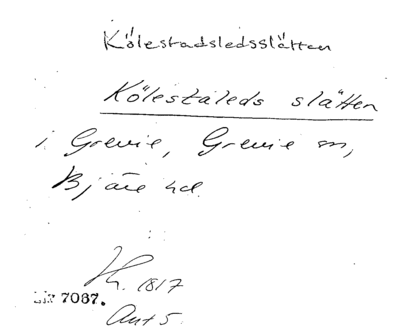 Kölestadsledsslätten
Kölestaleds slätten
i Grevie, Grevie sn,
Bjäre hd.
1817
7087.
Akt 5.